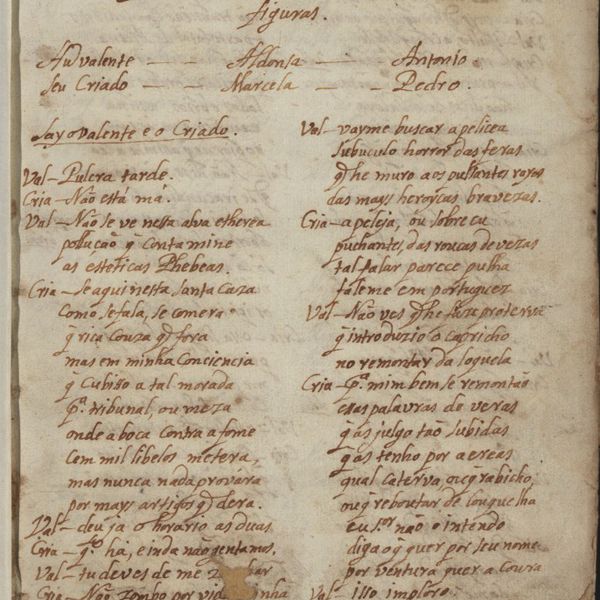 figuras.
Hũ valente — — Aldonsa — Antonio.
seu Criado — — Marcela — Pedro.
Say o Valente e o Criado.
Val — Pulcra tarde.
Cria — Não está má.
Val — Não se ve nessa alva etherea
pollução q̃ contamine
as esteticas Phebeas.
Cria — se aqui nesta santa caza
como se fala, se comera
q̃ rica couza q̃ fora
mas em minha Conciencia
q̃ a tal morada
pª. tribunal, ou meza
onde a boca contra a fome
cem mil libelos metera,
mas nunca nada provára
por mays artigos q̃ dera.
Val — deu ja o horario as duas
Cria — q̃ há, e inda não gentamos.
Val — tu deves de me
Cria — Não zombo por vida
Val — vayme buscar a pelicea
horror das feras
q̃ he muro aos puchantes
das mays heroycas bravezas.
Cria — a peleja, ou sobre eu
puchantes, das roucas de vezas
tal falar parece pulha
faleme em portuguez
Val — Não ves q̃ he
q̃ introduzio o capricho
no remontar da loquela
Cria — pª. mim bem se remontão
esas palavras de veras
q̃ as julgo tão subidas
q̃ as tenho por aereas
qual caterva, o q̃ rabicho,
o q̃ reboutar de
eu sor. não o intendo
diga o q̃ quer por seu nome
por ventura quer a coura
Val — isso imploro.